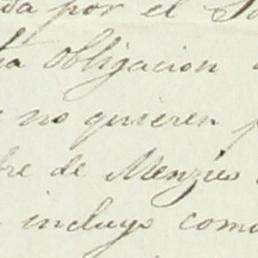 da por el
obligacion
no quieren
re de Menzies
incluyo como